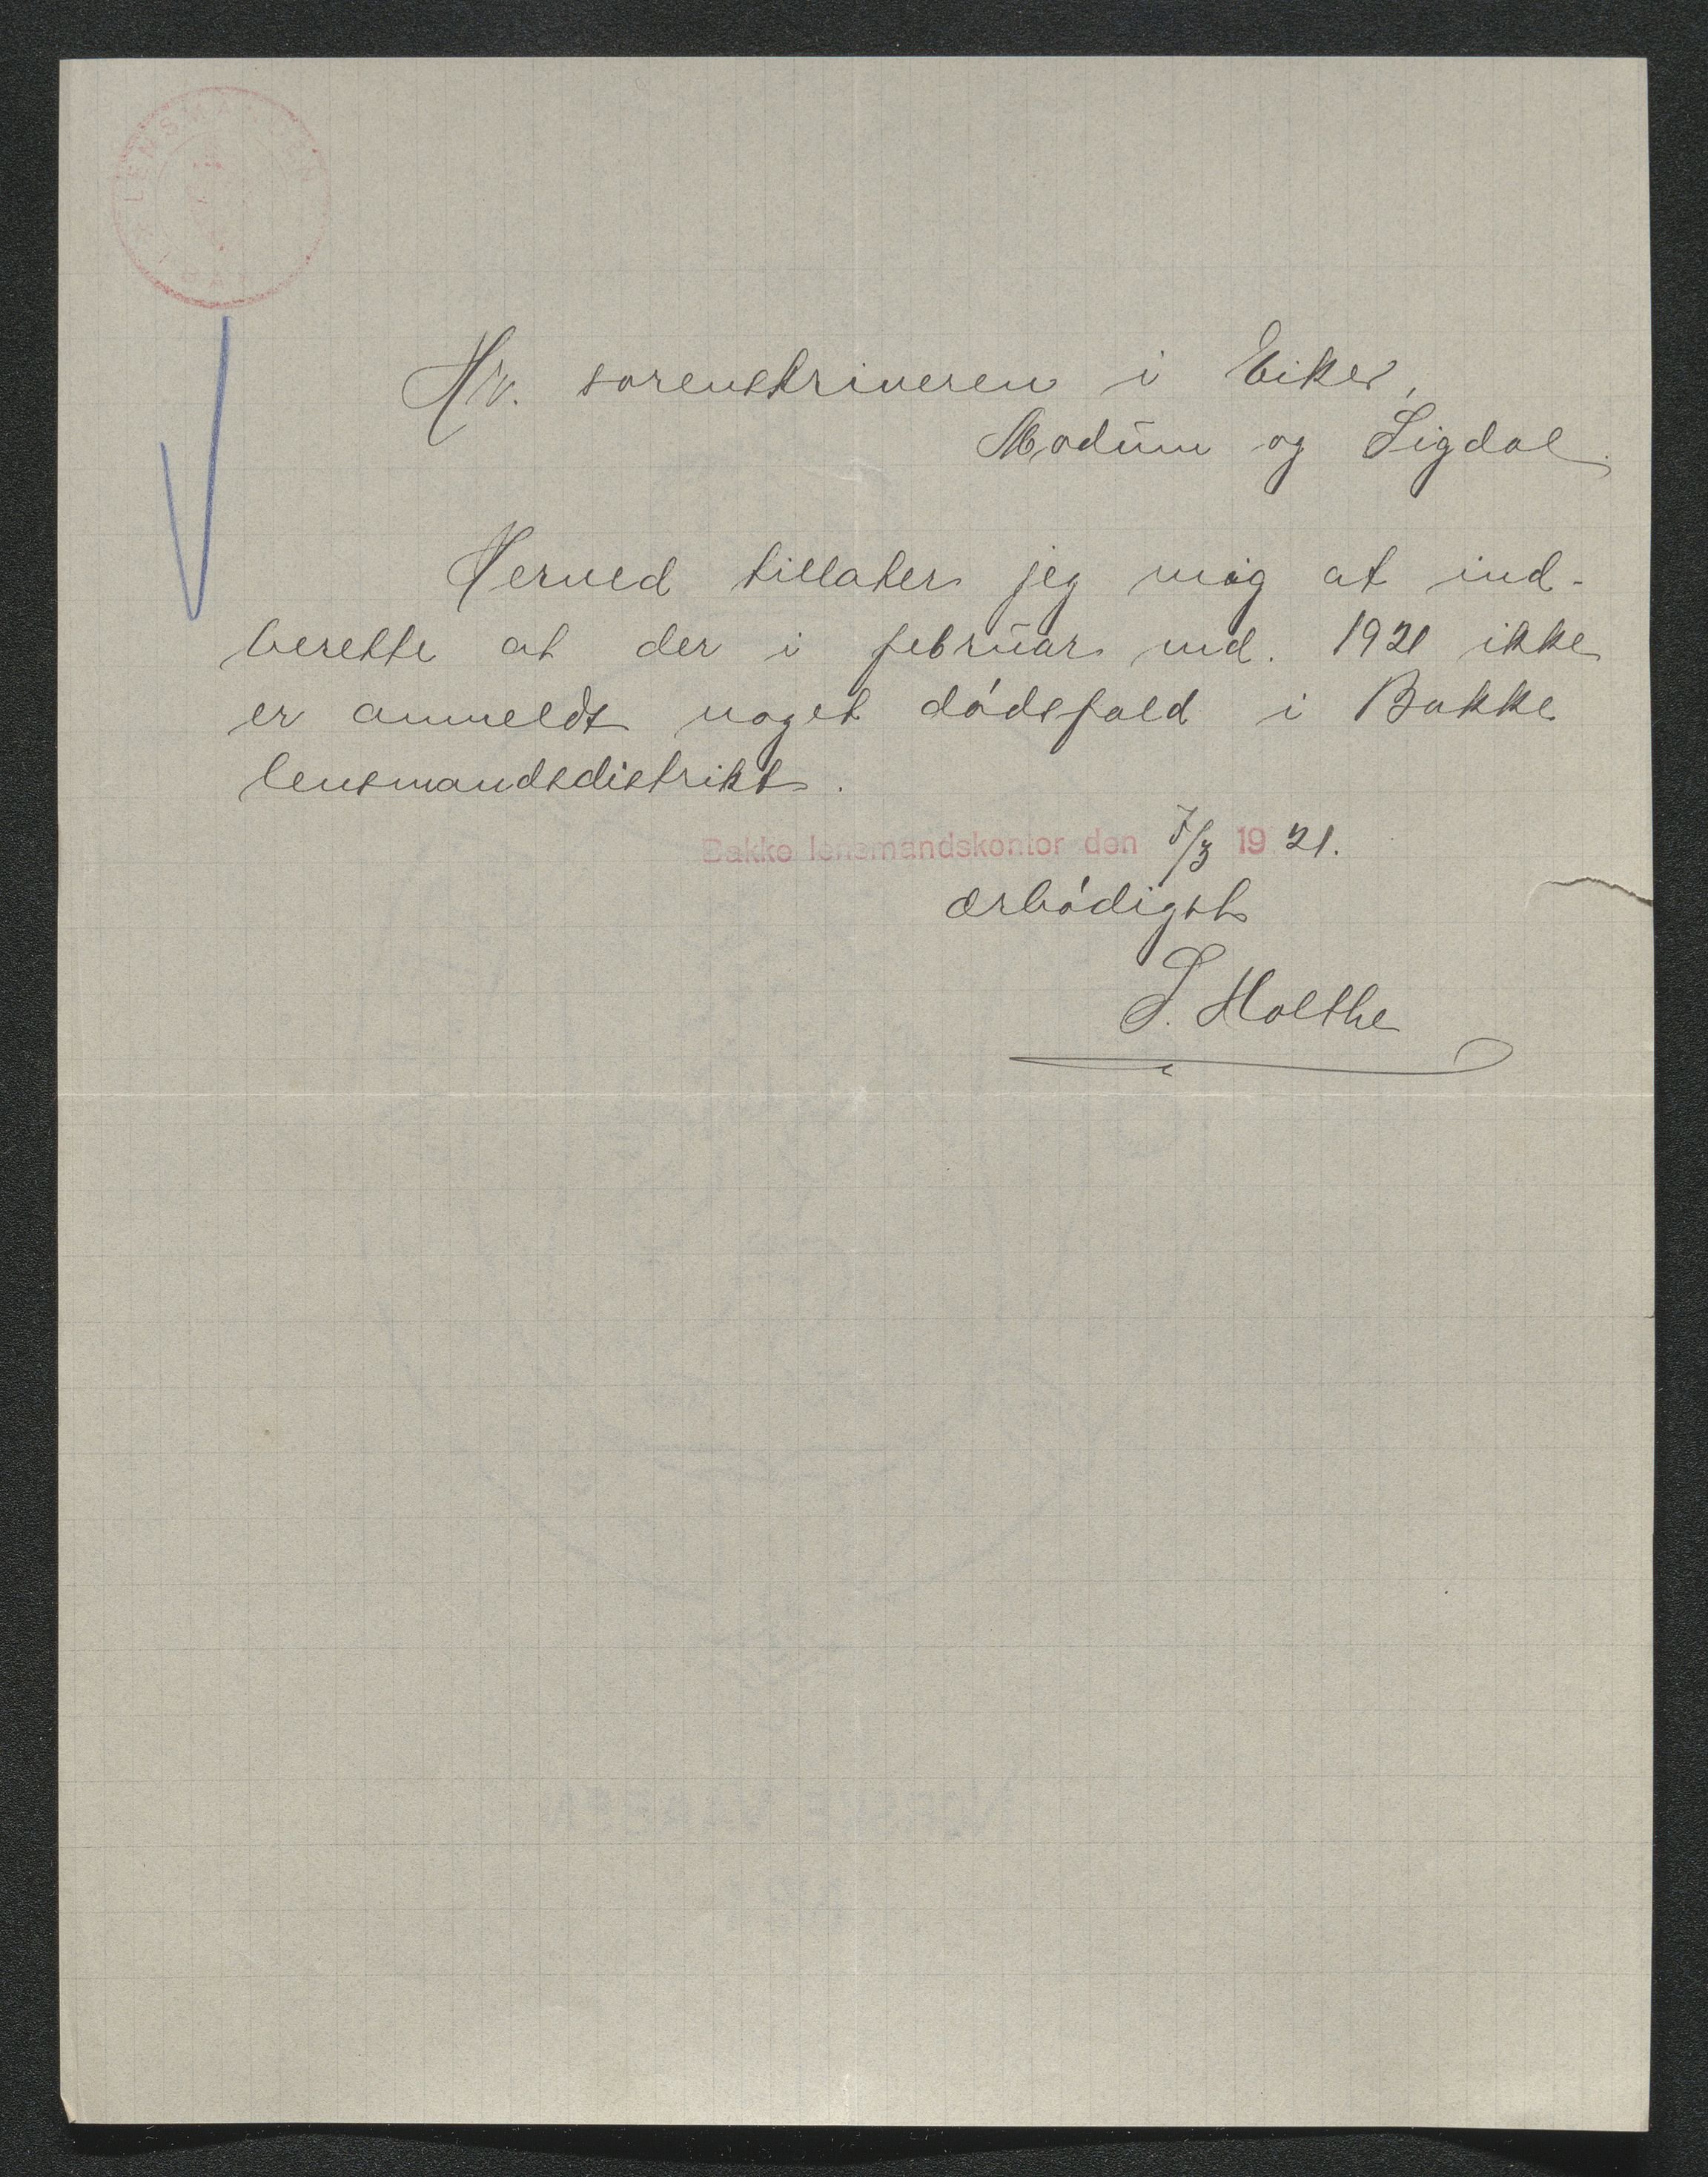 LENSMAND
Hr. sorenskriveren i Eiker,
Modum og Sigdal.
Herved tillater jeg mig at ind-
berette at der i februar md. 1921 ikke
er anmeldt noget dødsfald i Bakke
lensmandsdistrikt.
Bakke lensmandskontor den 7/3 1921.
ærbødigst
S. Holthe